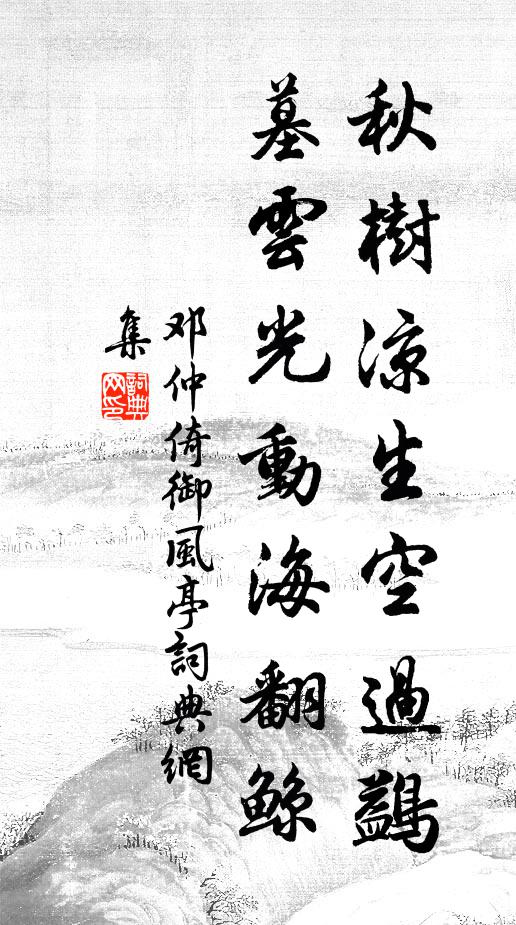 秋樹涼生空過鷁
墓雲光動海翻鯨
邓仲倚御風亭詞典網
集
詞典
网印